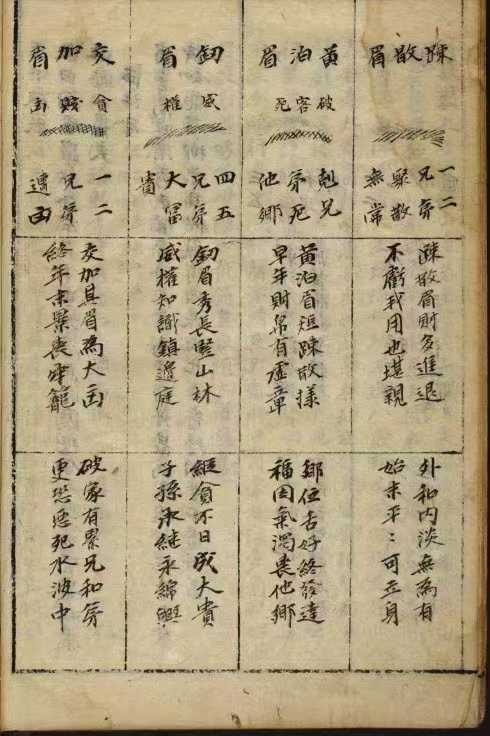 疎散眉
一二兄弟聚散無常
疎散眉財多進退
不虧我用也堪親
外和内淡無為有
始末平〻可立身
黄泊眉
破客死
剋兄弟死他鄉
黄泊眉短疎散様
早年財帛有虚章
部位好終發達
福因氣濁喪他鄉
釖眉
威權
四五兄弟大冨貴
釖眉秀長山林
威權知識鎮邊庭
縱貧不日成大貴
子孫永継永綿興
交加眉
貪賤凶
一二兄弟遭凶
交加其眉為大凶
終年末景喪牢籠
破家有累兄和弟
更恐惡死水波中